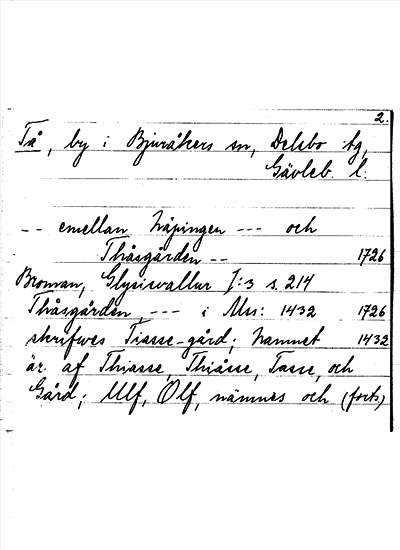 2.
Tå, by i Bjuråkers sn, Delsbo tg,
Gävleb. l.
-- emellan Näpingen --- och
Thåsgården -- 1726
Broman, Glysisvallur I:3 s. 214
Thåsgården, --- i Mss: 1432 1726
skrifwes Tiasse-gård; namnet 1432
är af Thiasse, Thiåsse, Tasse, och
Gård; Ulf, Olf, nämnes och (forts)